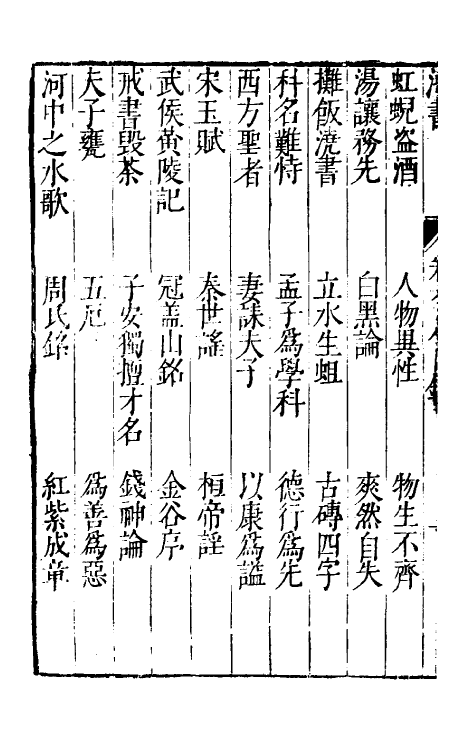 虹蜺盗酒　人物異性　物生不齊
湯讓務先　白黑論　爽然自失
攤飯澆書　立水生蛆　古磚四字
科名難恃　孟子爲學科　德行爲先
西方聖者　妻誄夫子　以康爲謚
宋玉賦　秦世謠　桓帝謡
武侯黃陵記　冠盖山銘　金谷序
戒書毀茶　子安獨擅才名　錢神論
夫子甕　五厄　爲善爲惡
河中之水歌　周氏銘　紅紫成章